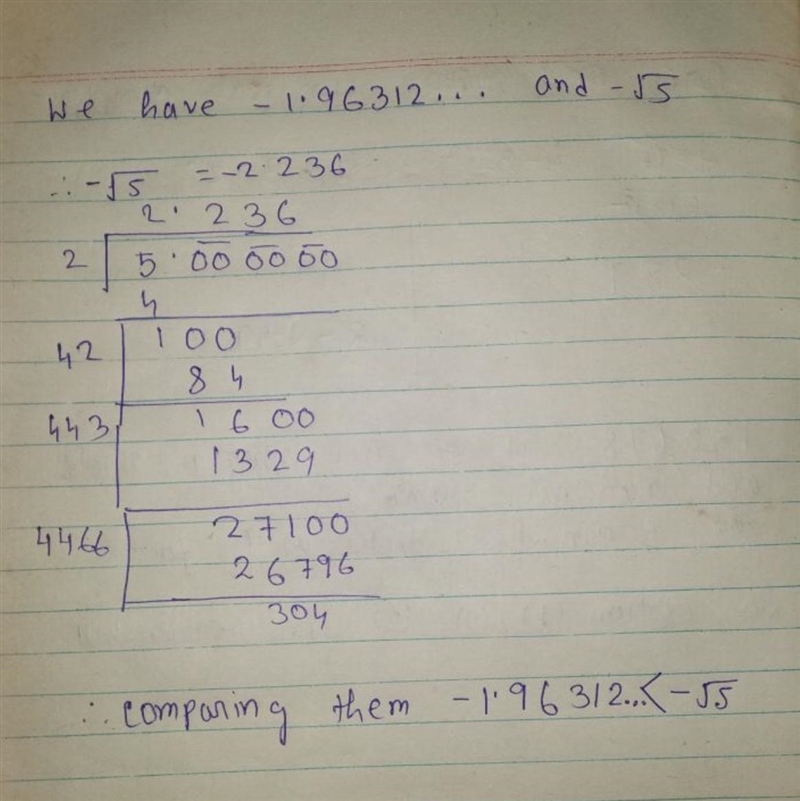 We have -1.96312... and -√5
∴ -√5 = -2.236
2. 236
2 5.00 00 00
4
42 100
84
443 1600
1329
4466 27100
26796
304
∴ comparing them -1.96312...< -√5